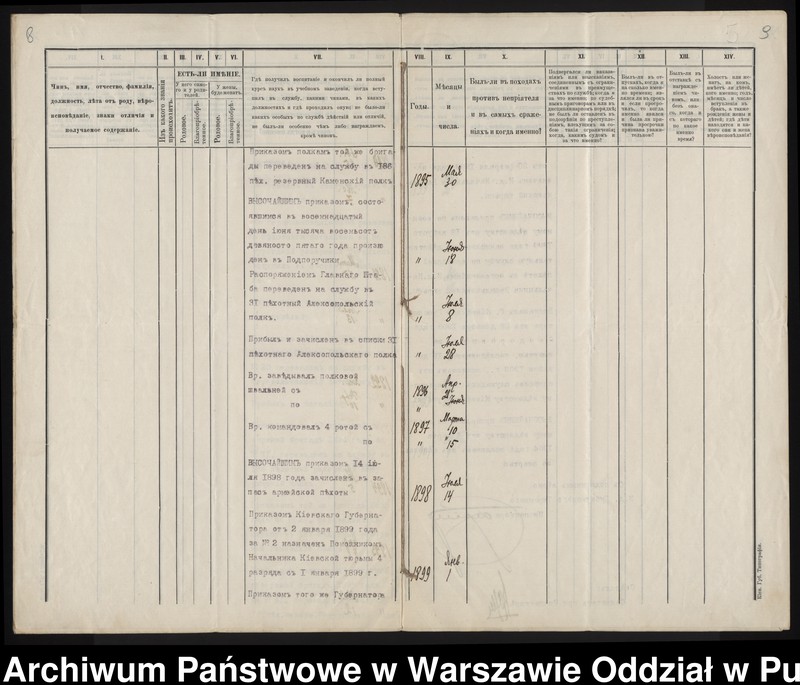 8
9
I.
II.
III.
IV.
V.
VI.
VII.
VIII.
IX.
X.
XI.
XII.
XIII.
XIV.
Чинъ, имя, отчество, фамилія,
должность, лѣта отъ роду, вѣро-
исповѣданіе, знаки отличія и
получаемое содержаніе.
Изъ какого званія
происходитъ.
ЕСТЬ-ЛИ ИМѢНІЕ.
У него само-
го и у роди-
телей
У жены,
Родовое.
Благопріобрѣ-
тенное.
Родовое.
Благопріобрѣ-
тенное.
Гдѣ получилъ воспитаніе и окончилъ ли полный
курсъ наукъ въ учебномъ заведеніи, когда всту-
пилъ въ службу, какими чинами, въ какихъ
должностяхъ и гдѣ проходилъ оную; не было-ли
какихъ особыхъ по службѣ дѣяній или отличій,
не былъ-ли особенно чѣмъ либо награждаемъ,
кромѣ чиновъ.
Годы.
Мѣсяцы
и
числа.
Былъ-ли въ походахъ
противъ непріятеля
и въ самыхъ сраже-
ніяхъ и когда именно?
Былъ-ли въ
отставкѣ съ
награжде-
ніемъ чи-
номъ, или
безъ она-
го, когда и
съ котораго
по какое
именно
время?
Приказомъ полкамъ той же брига
ды переведенъ на службу въ 188
пѣх. резервный Каменскій полкъ
1895
Мая
30
ВЫСОЧАЙШИМЪ приказомъ, состо-
явшимся въ восемнадцатый
день іюня тысяча восемьсотъ
девяносто пятаго года произве
денъ въ Подпоручики
"
Іюня
18
Распоряженіемъ Главнаго Шта-
ба переведенъ на службу въ
31 пѣхотный Алексопольскій
полкъ.
"
Іюля
8
Прибылъ и зачисленъ въ списки 31
пѣхотнаго Алексопольскаго полка
"
Іюля
28
Вр. завѣдывалъ полковой
швальней съ
по
1896
Апр.
"
Іюня
Вр. командовалъ 4 ротой съ
по
1897
Марта
10
"
"
15
ВЫСОЧАЙШИМЪ приказомъ 14 ію-
ля 1898 года зачисленъ въ за-
пасъ армейской пѣхоты
1898
Іюля
14
Приказомъ Кіевскаго Губерна-
тора отъ 2 января 1899 года
за № 2 назначенъ Помощникомъ
Начальника Кіевской тюрьмы 4
разряда съ 1 января 1899 г.
1899
Янв.
1
Приказомъ того же Губернатора
Кіев. Губ. Типографія.
Archiwum Państwowe w Warszawie Oddział w Pu